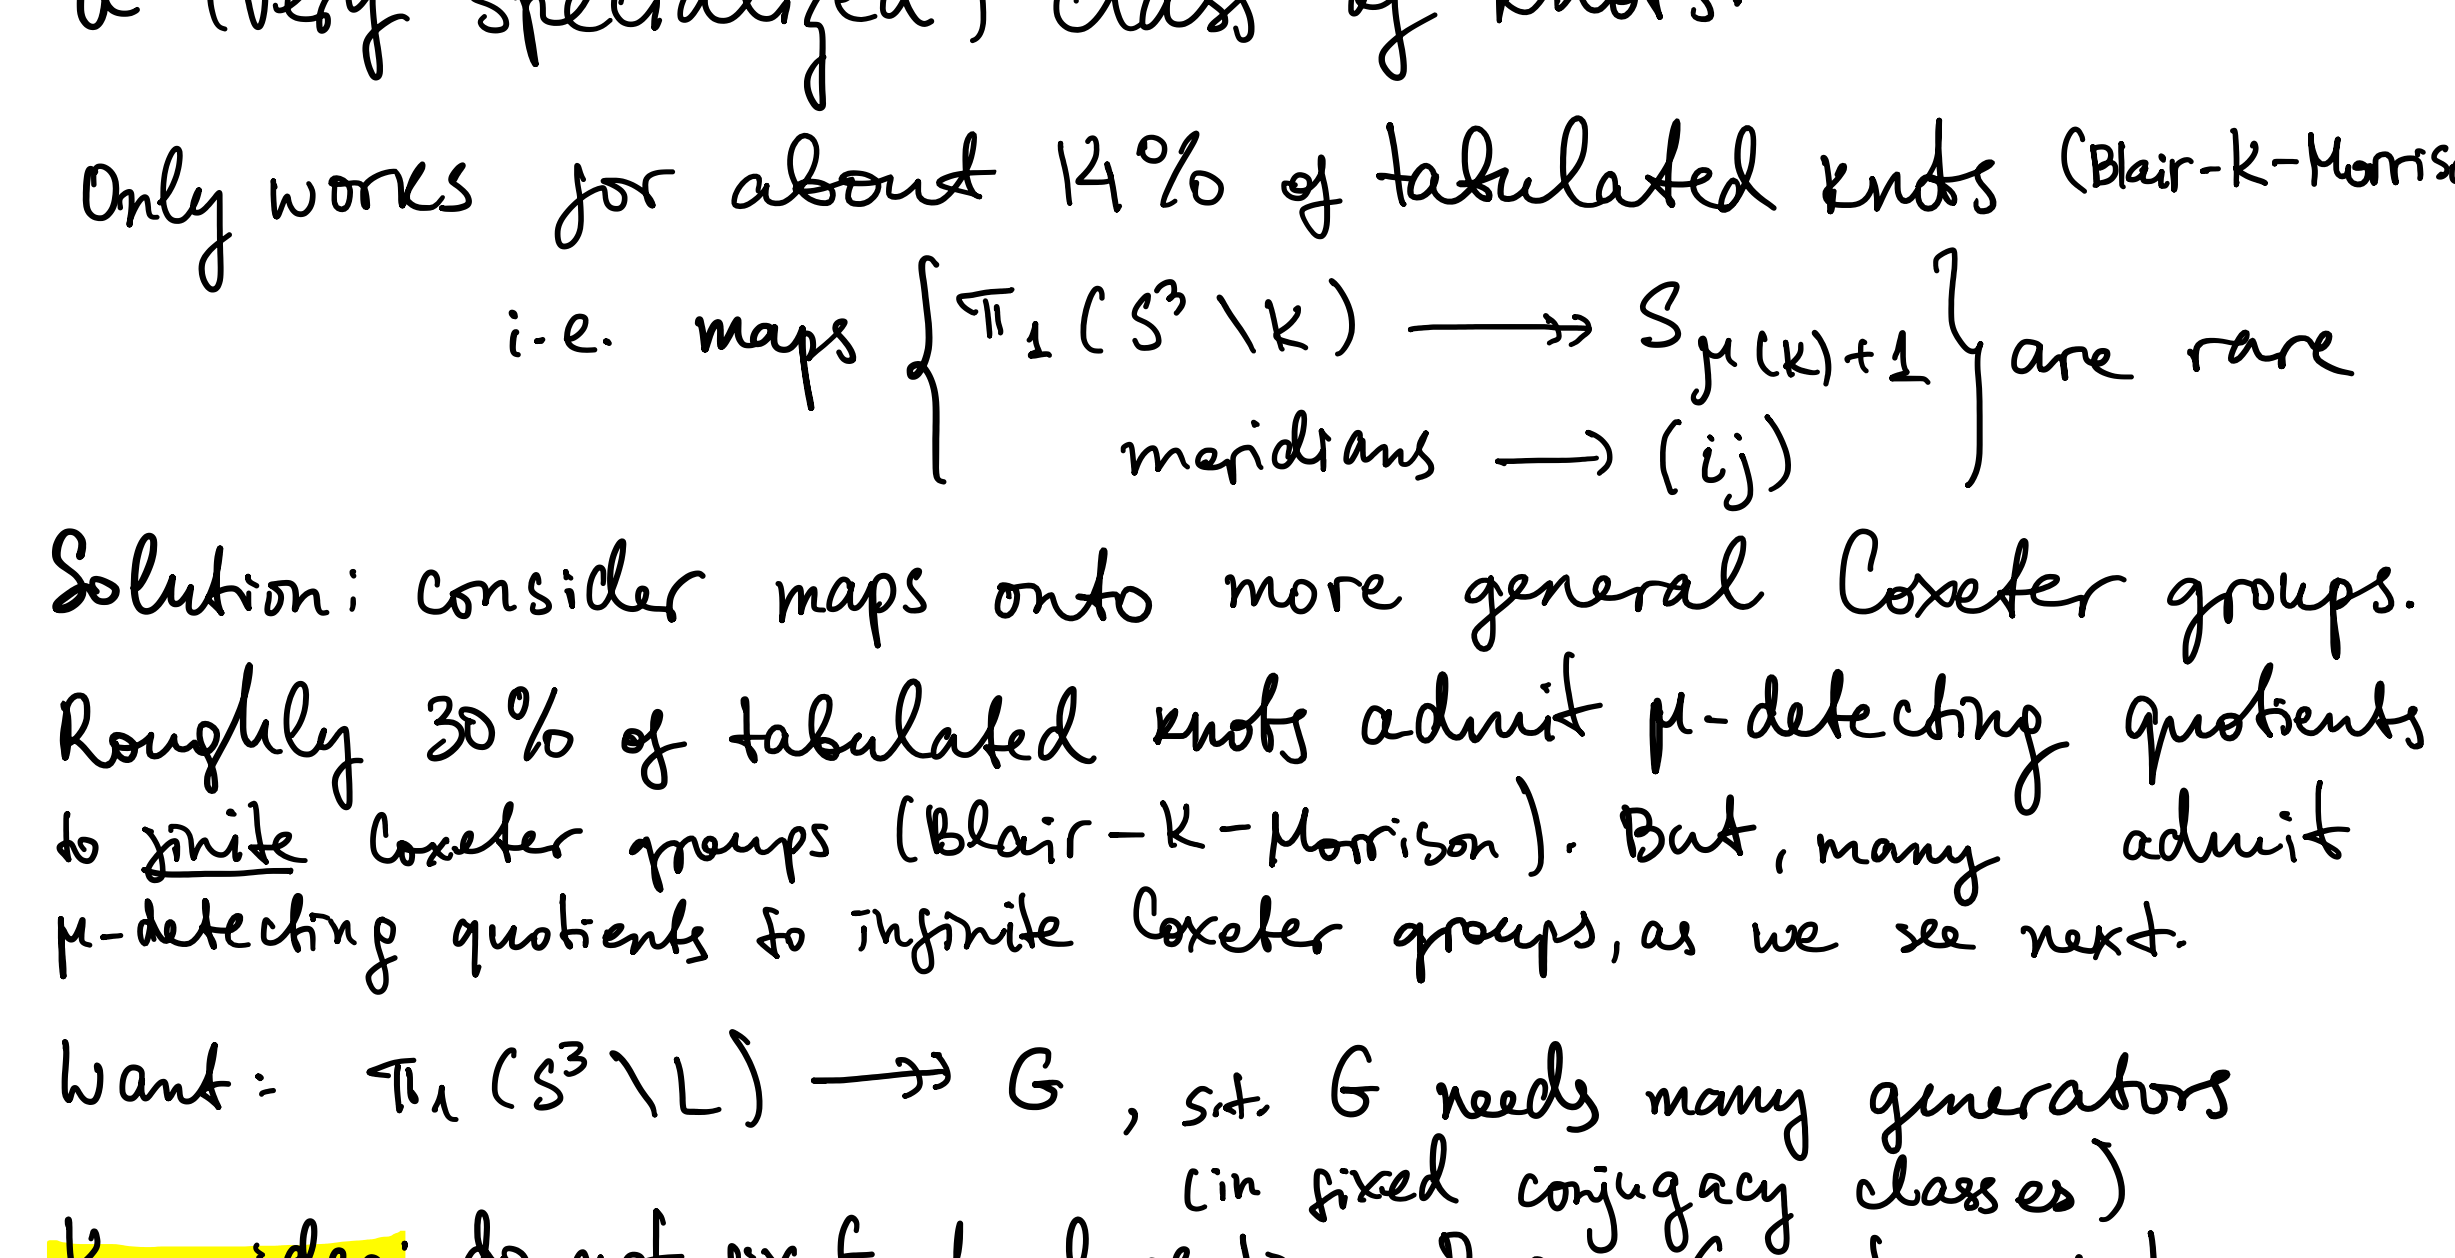 a (very specialized) class of knots.
Only works for about 14% of tabulated knots (Blair-K-Morriso
i.e. maps { π₁(S³\K) ↠ S_{μ(K)+1} } are rare
meridians → (ij)
Solution: consider maps onto more general Coxeter groups.
Roughly 30% of tabulated knots admit μ-detecting quotients
to finite Coxeter groups (Blair-K-Morrison). But, many admit
μ-detecting quotients to infinite Coxeter groups, as we see next.
Want: π₁(S³\L) ↠ G, s.t. G needs many generators
(in fixed conjugacy classes)
idea: do not